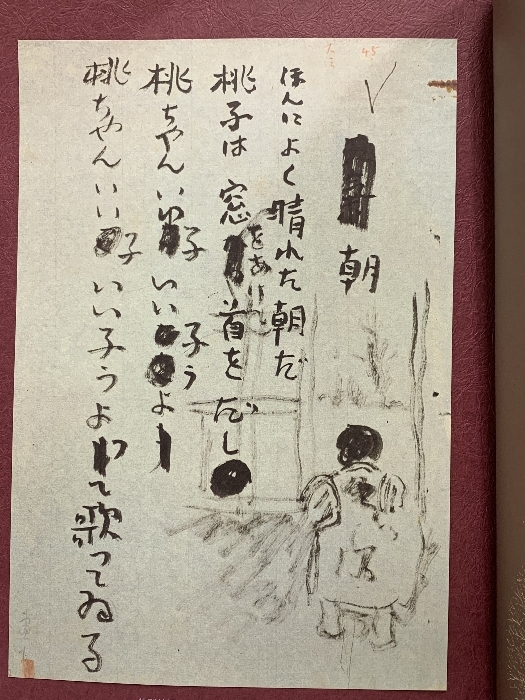 45
朝
ほんによく晴れた朝だ
桃子は窓をあけて首をだし
桃ちゃんいい子いい子うよ
桃ちゃんいい子いい子うよって歌ってゐる